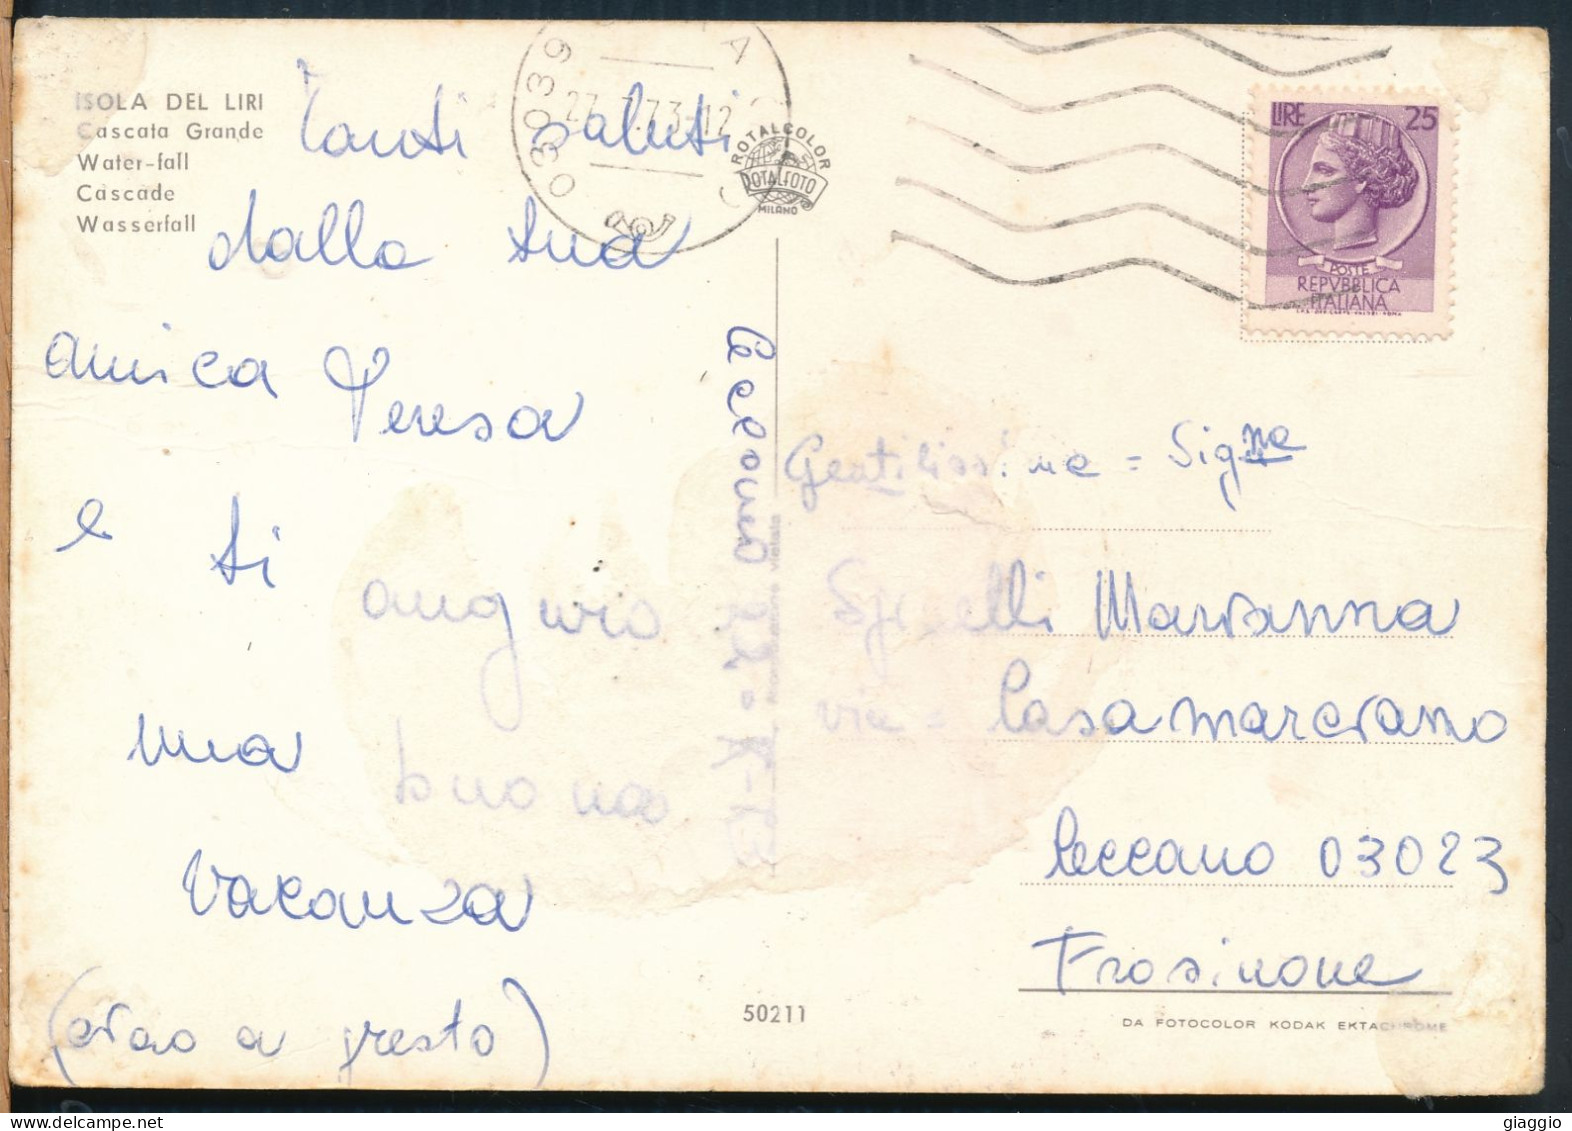 ISOLA DEL LIRI
Cascata Grande
Water-fall
Cascade
Wasserfall
Tanti saluti
dalla tua
amica Teresa
e ti augurio
una buona
vacanza
(ciao a presto)
03039
27.7.73-12
A
ROTALCOLOR
ROTALFOTO
MILANO
LIRE 25
POSTE
REPVBBLICA
ITALIANA
Gentilissima = Sig.na
Marianna
via = Casamarciano
Ceccano 03023
Frosinone
50211
DA FOTOCOLOR KODAK EKTACHROME
giaggio